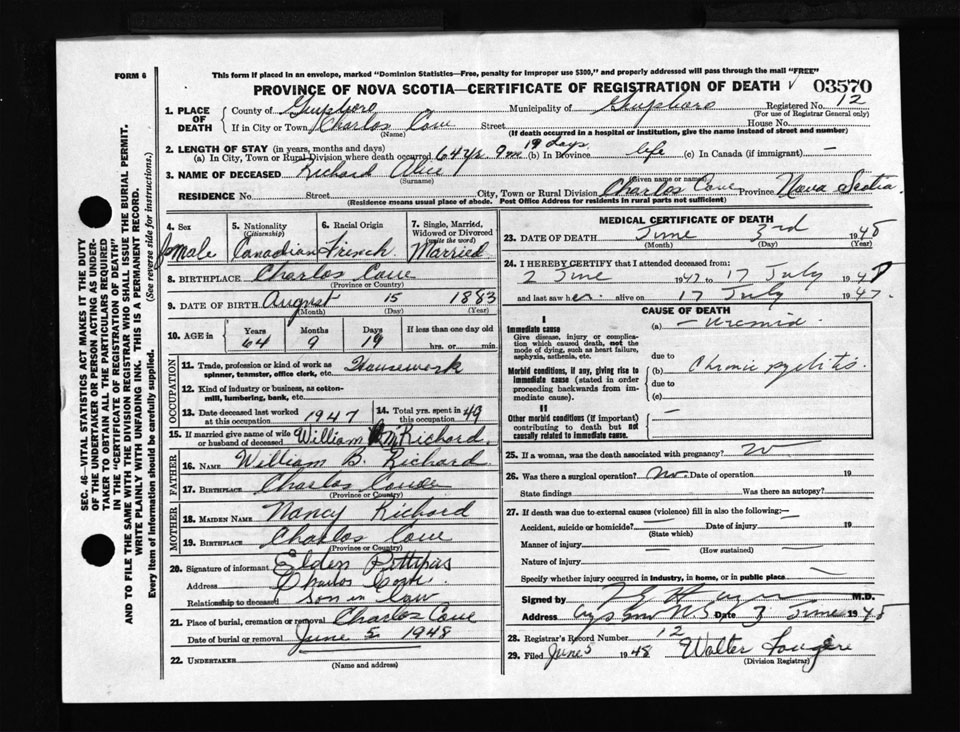 FORM 6
This form if placed in an envelope, marked "Dominion Statistics—Free, penalty for improper use $300," and properly addressed will pass through the mail "FREE"
PROVINCE OF NOVA SCOTIA—CERTIFICATE OF REGISTRATION OF DEATH 03570
1. PLACE OF DEATH County of Guysboro Municipality of Guysboro Registered No. 12
(For use of Registrar General only)
If in City or Town Charlos Cove Street House No.
(Name) (If death occurred in a hospital or institution, give the name instead of street and number)
2. LENGTH OF STAY (in years, months and days)
(a) In City, Town or Rural Division where death occurred 64 yr 9 m 19 days (b) In Province life (c) In Canada (if immigrant) —
3. NAME OF DECEASED Richard Alice
(Surname) Given name or names
RESIDENCE No. Street City, Town or Rural Division Charlos Cove Province Nova Scotia
(Residence means usual place of abode. Post Office Address for residents in rural parts not sufficient)
4. Sex female
5. Nationality (Citizenship) Canadian
6. Racial Origin French
7. Single, Married, Widowed or Divorced (write the word) Married
8. BIRTHPLACE Charlos Cove
(Province or Country)
9. DATE OF BIRTH August 15 1883
(Month) (Day) (Year)
10. AGE in Years 64 Months 9 Days 19 If less than one day old hrs. or min.
OCCUPATION
11. Trade, profession or kind of work as spinner, teamster, office clerk, etc. Housework
12. Kind of industry or business, as cotton-mill, lumbering, bank, etc.
13. Date deceased last worked at this occupation 1947
14. Total yrs. spent in this occupation 49
15. If married give name of wife or husband of deceased William M Richard.
FATHER
16. NAME William B. Richard
17. BIRTHPLACE Charlos Cove
(Province or Country)
MOTHER
18. MAIDEN NAME Nancy Richard
19. BIRTHPLACE Charlos Cove
(Province or Country)
20. Signature of informant Elden Pettipas
Address Charlos Cove
Relationship to deceased son in law
21. Place of burial, cremation or removal Charlos Cove
Date of burial or removal June 5 1948
22. UNDERTAKER
(Name and address)
MEDICAL CERTIFICATE OF DEATH
23. DATE OF DEATH June 3rd 1948
(Month) (Day) (Year)
24. I HEREBY CERTIFY that I attended deceased from:
2 June 1947 to 17 July 194
and last saw her alive on 17 July 1947.
CAUSE OF DEATH
I
Immediate cause
Give disease, injury or complication which caused death, not the mode of dying, such as heart failure, asphyxia, asthenia, etc.
(a) — Uremia.
due to
Morbid conditions, if any, giving rise to immediate cause (stated in order proceeding backwards from immediate cause).
(b) Chronic pyelitis.
due to
(c)
II
Other morbid conditions (if important) contributing to death but not causally related to immediate cause. —
25. If a woman, was the death associated with pregnancy?
26. Was there a surgical operation? No. Date of operation 19
State findings Was there an autopsy?
27. If death was due to external causes (violence) fill in also the following:—
Accident, suicide or homicide? — Date of injury 19
(State which)
Manner of injury —
(How sustained)
Nature of injury
Specify whether injury occurred in industry, in home, or in public place
Signed by M.D.
Address N.S. Date 3 June 1948
28. Registrar's Record Number 12
29. Filed June 5 1948 Walter Fougere
(Division Registrar)
SEC. 46—VITAL STATISTICS ACT MAKES IT THE DUTY
OF THE UNDERTAKER OR PERSON ACTING AS UNDER-
TAKER TO OBTAIN ALL THE PARTICULARS REQUIRED
IN THE "CERTIFICATE OF REGISTRATION OF DEATH"
AND TO FILE THE SAME WITH THE DIVISION REGISTRAR WHO SHALL ISSUE THE BURIAL PERMIT.
WRITE PLAINLY WITH UNFADING INK. THIS IS A PERMANENT RECORD.
Every item of information should be carefully supplied. (See reverse side for instructions.)